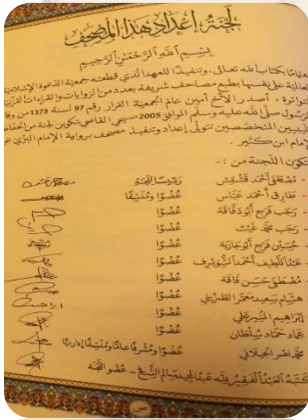 لجنة إعداد هذا المصحف
بسم الله الرحمن الرحيم
بكتاب الله تعالى، وتنفيذًا للعهد الذي قطعته جمعية الدعوة الإسلامية
العالمية على نفسها بطبع مصاحف شريفة بعدد من الروايات والقراءات
أصدر الأخ أمين عام الجمعية القرار رقم 97 لسنة 1373 من وفاة
الرسول صلى الله عليه وسلم الموافق 2005 مسيحي القاضي بتكوين لجنة من
المتخصصين تتولى إعداد وتنفيذ مصحف برواية الإمام البزي عن
الإمام ابن كثير.
تتكون اللجنة من :-
مصطفى أحمد قشقش رئيسًا للجنة
طارق أحمد عباس عضوًا ومنسقًا
رجب فرج أبو دقاقة عضوًا
رجب محمد غيث عضوًا
حسين فرج أبو جازية عضوًا
عبد اللطيف أحمد الشويرف عضوًا
مصطفى حسين قاقة عضوًا
سعيد عضوًا
إبراهيم عضوًا
حماد سلطان عضوًا
محمد نصر الجيلاني عضوًا ومشرفًا عامًا ومنسقًا إداريًا
كتبه العبد الفقير لله عبد المجيد سالم الشيخ - عضو اللجنة
ص